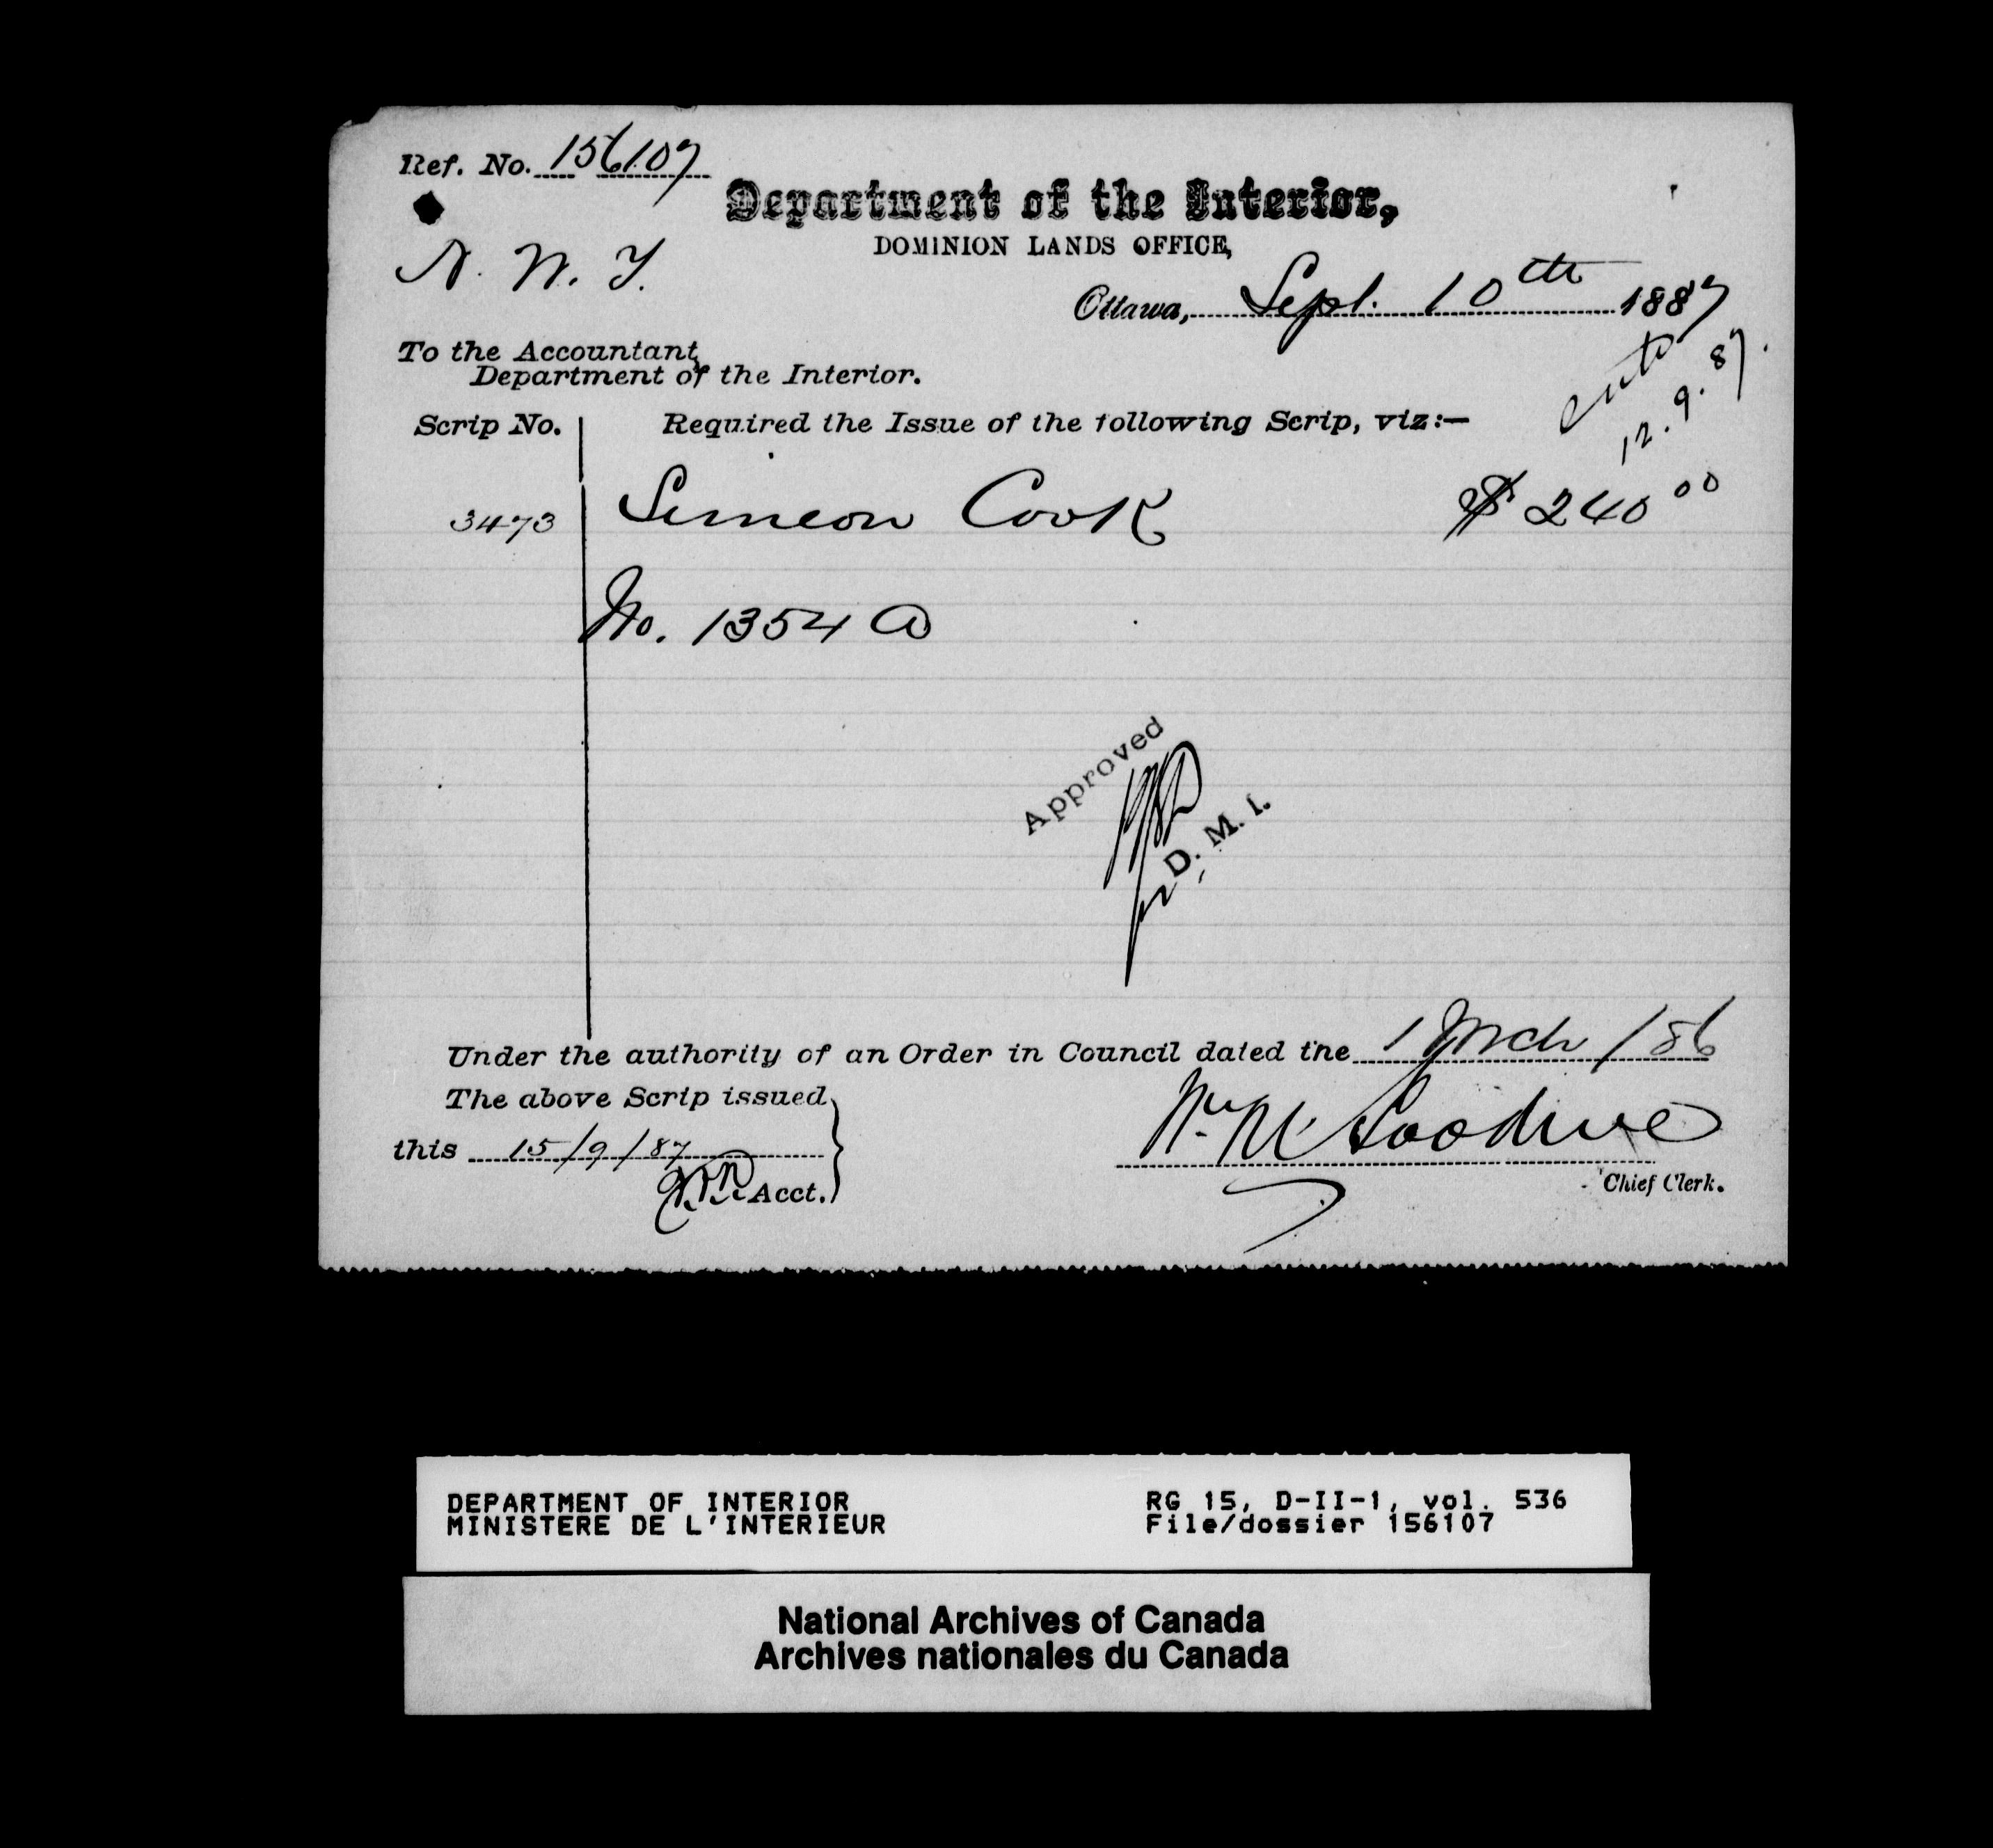 Ref. No. 156107
Department of the Interior,
DOMINION LANDS OFFICE,
N. W. T.
Ottawa, Sept. 10th 1887
To the Accountant,
Department of the Interior.
12.9.87.
Scrip No. Required the Issue of the following Scrip, viz:—
3473 Simeon Cook $ 240 00
No. 1354 A
Approved
D. M. I.
Under the authority of an Order in Council dated the 1 Mch /86
The above Scrip issued
this 15/9/87
Acct.
Chief Clerk.
DEPARTMENT OF INTERIOR
MINISTERE DE L'INTERIEUR
RG 15, D-II-1, vol. 536
File/dossier 156107
National Archives of Canada
Archives nationales du Canada